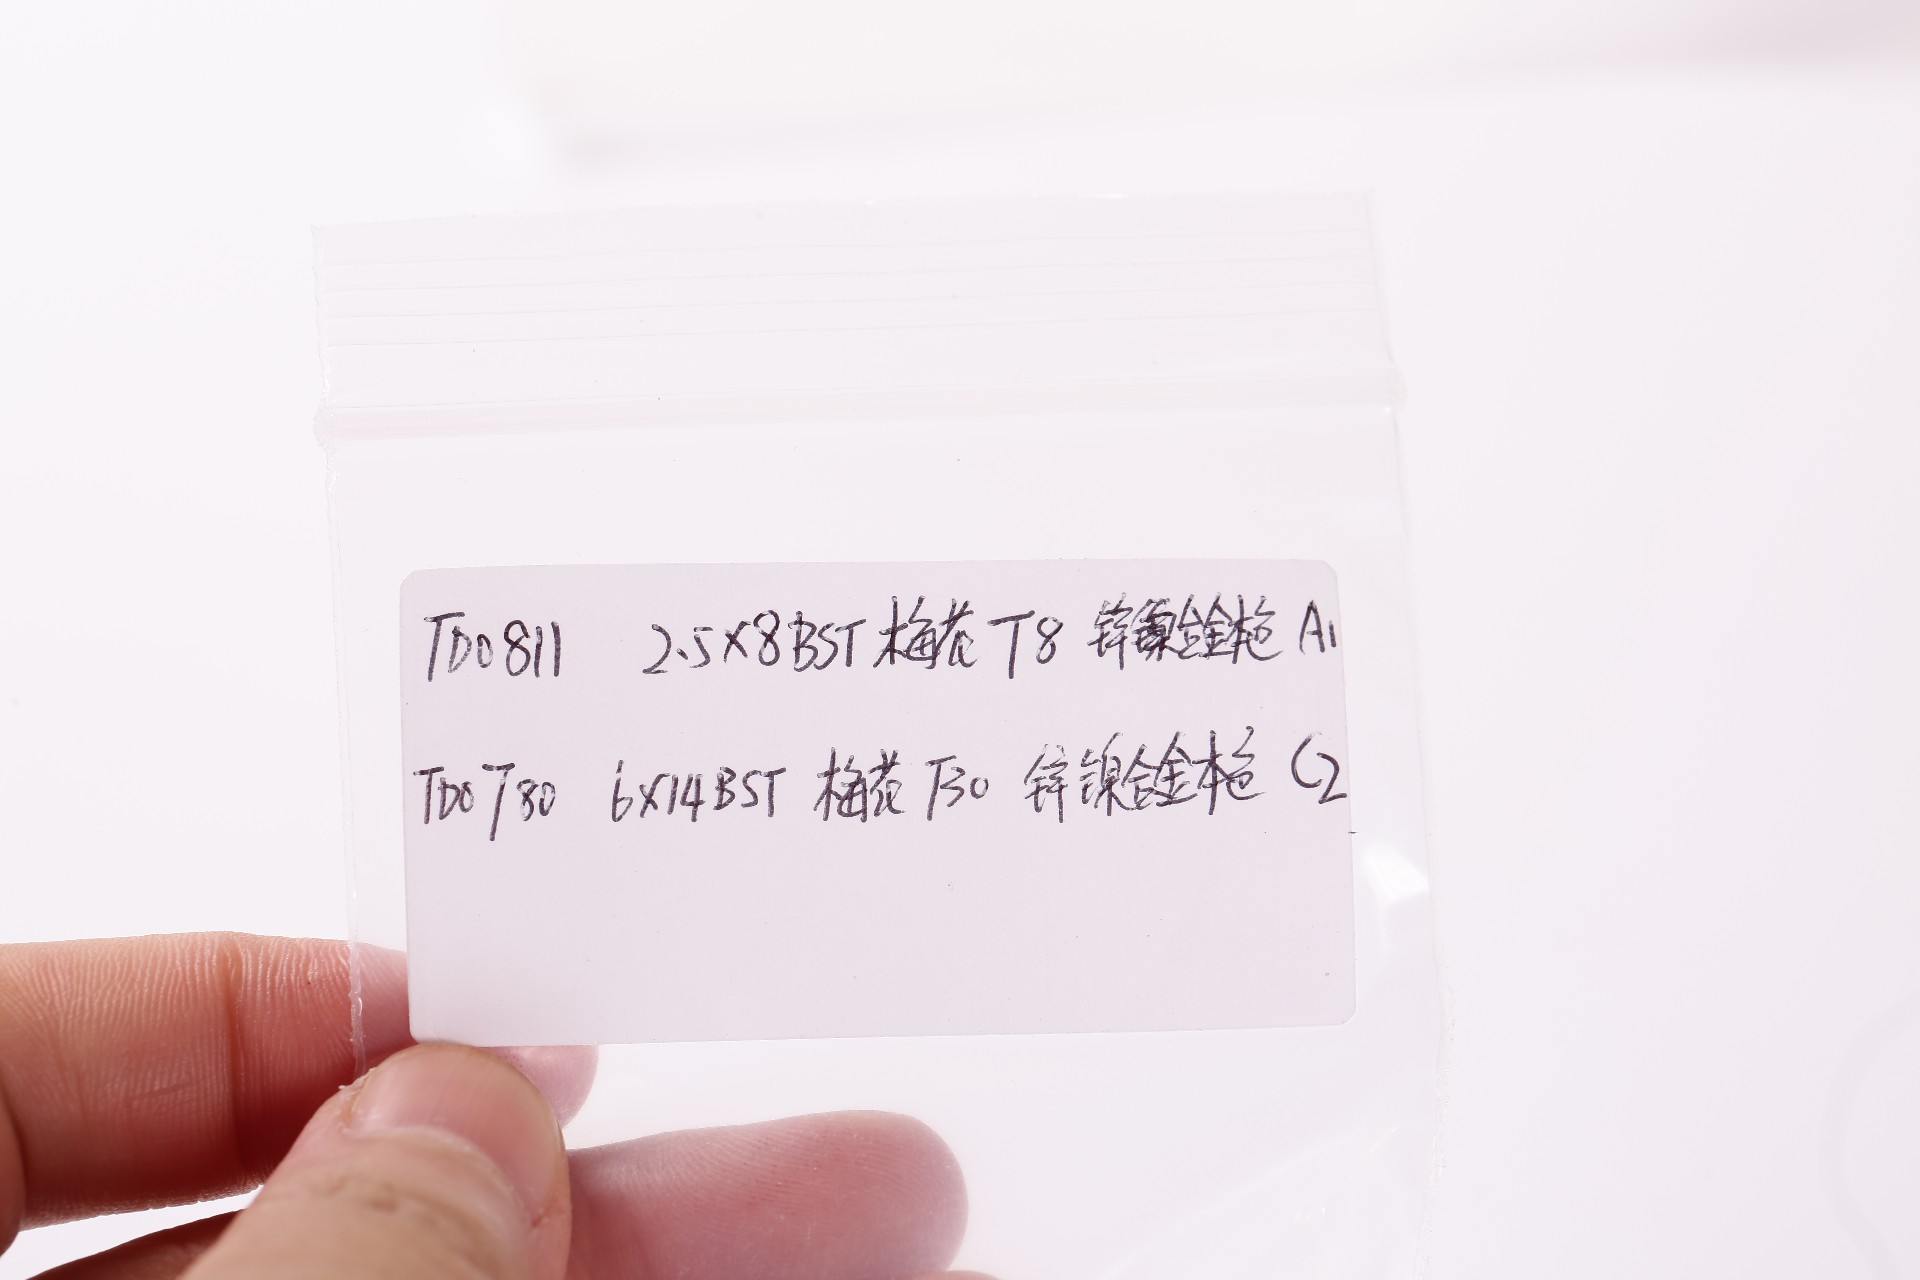 TD0811 2.5×8BST 梅花 T8 锌镍合金本色 A1
TD0T80 6×14BST 梅花 T30 锌镍合金本色 C2